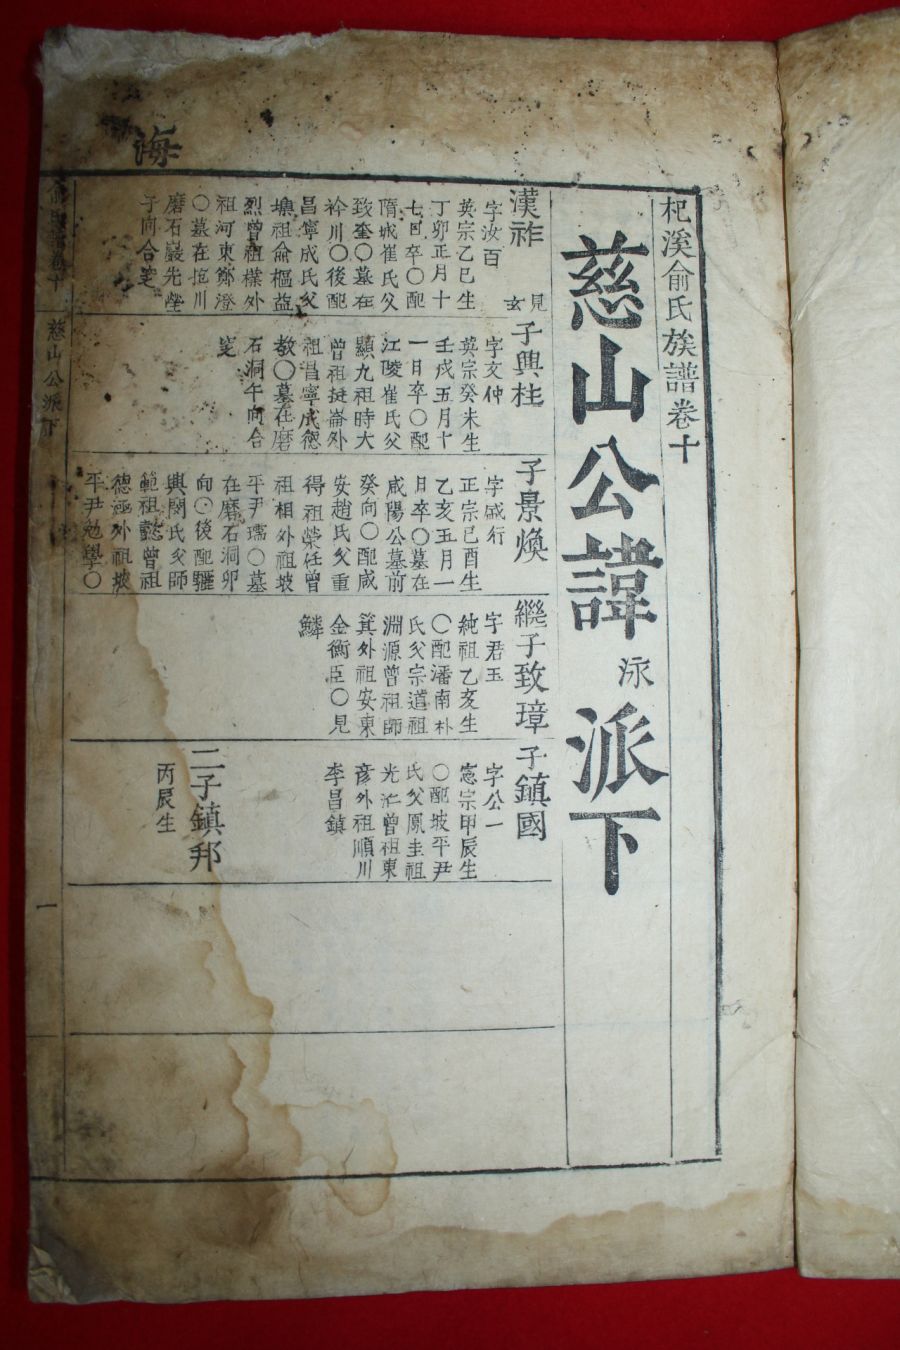 海
杞溪俞氏族譜卷十
慈山公諱泳派下
漢祚
見玄
字汝百
英宗乙巳生
丁卯正月十
七日卒〇配
隋城崔氏父
致奎〇墓在
衿川〇後配
昌寧成氏父
祖俞樞益
烈曾祖樸外
祖河東鄭澄
〇墓在抱川
磨石巖先塋
子向合窆
子興柱
字文仲
英宗癸未生
壬戌五月十
一月卒〇配
江陵崔氏父
顯九祖時大
曾祖挺崙外
祖昌寧成德
〇墓在磨
石洞午向合
窆
子景煥
字咸行
正宗己酉生
乙亥五月一
月卒〇墓在
咸陽公墓前
癸向〇配咸
安趙氏父重
得祖榮任曾
祖相外祖坡
平尹瑀〇墓
在磨石洞卯
向〇後配驪
興閔氏父師
範祖懿曾祖
德涵外祖坡
平尹勉學〇
繼子致璋
字君玉
純祖乙亥生
〇配潘南朴
氏父宗道祖
淵源曾祖師
箕外祖安東
金衡臣〇見
鱗
子鎮國
字公一
憲宗甲辰生
〇配坡平尹
氏父鳳圭祖
光曾祖東
彥外祖順川
李昌鎮
二子鎮邦
丙辰生
慈山公派下
一